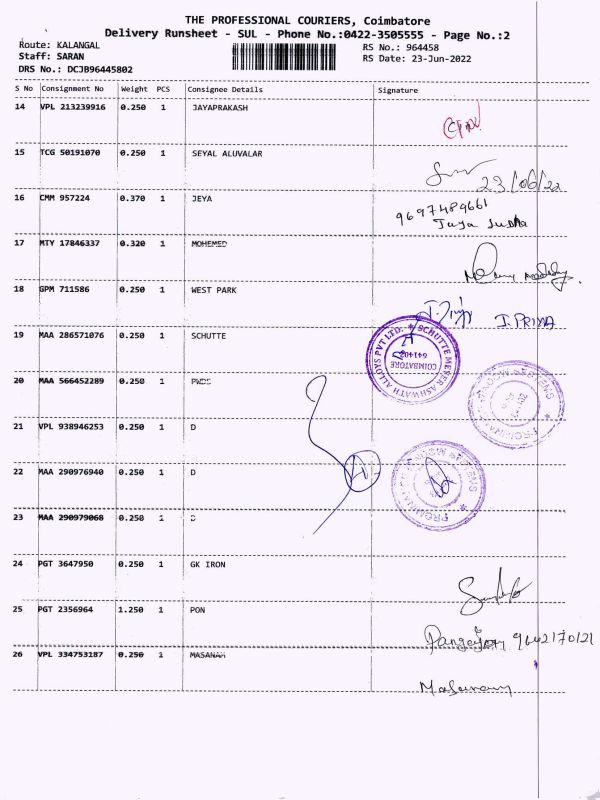 THE PROFESSIONAL COURIERS, Coimbatore
Delivery Runsheet - SUL - Phone No.:0422-3505555 - Page No.:2
Route: KALANGAL RS No.: 964458
Staff: SARAN RS Date: 23-Jun-2022
DRS No.: DCJB96445802
S No Consignment No Weight PCS Consignee Details Signature
14 VPL 213239916 0.250 1 JAYAPRAKASH
15 TCG 50191070 0.250 1 SEYAL ALUVALAR
23/06/22
16 CMM 957224 0.370 1 JEYA
9697489661
Jeya Sudha
17 MTY 17846337 0.320 1 MOHEMED
18 GPM 711586 0.250 1 WEST PARK
I.PRIYA
19 MAA 286571076 0.250 1 SCHUTTE
SCHUTTE MEYER ASHWATH ALLOYS PVT LTD.
COIMBATORE
641402
20 MAA 566452289 0.250 1 PWDS
21 VPL 938946253 0.250 1 D
22 MAA 290976940 0.250 1 D
23 MAA 290979068 0.250 1 D
24 PGT 3647950 0.250 1 GK IRON
25 PGT 2356964 1.250 1 PON
26 VPL 334753187 0.250 1 MASANAM